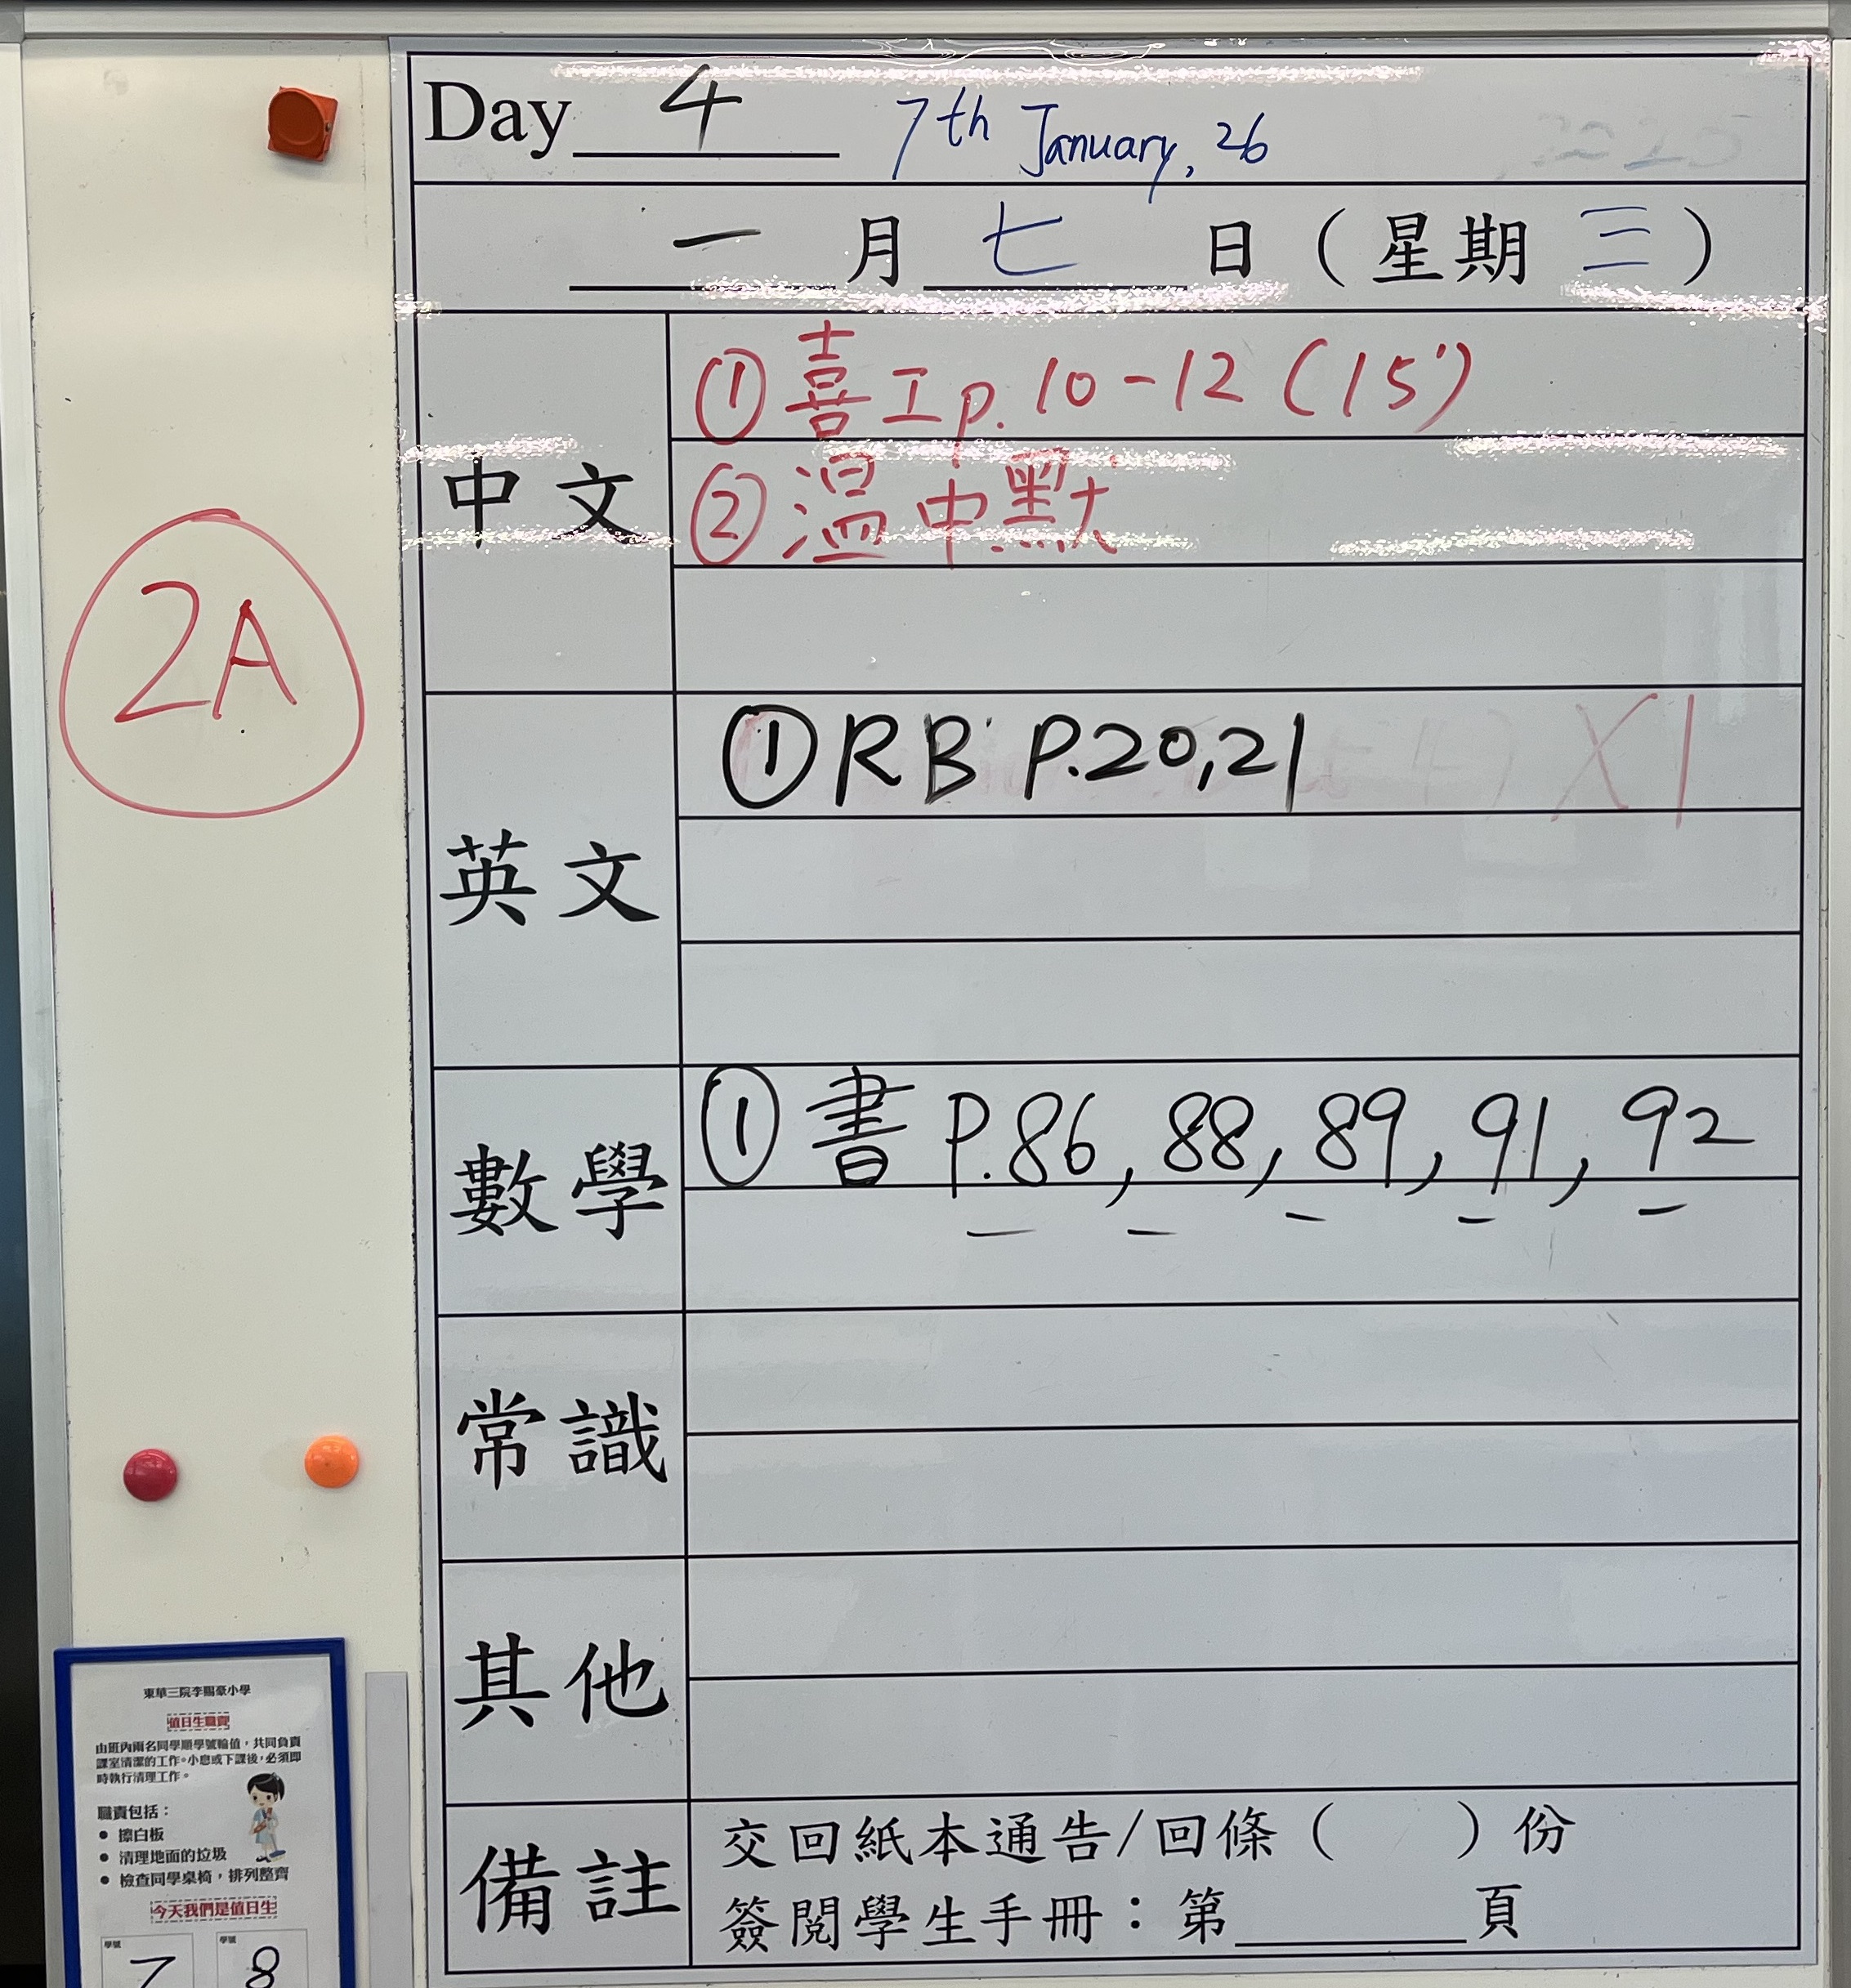 Day 4 7th January, 26
一 月 七 日（星期 三）
中文
① 喜工 p. 10-12 (15')
② 溫中默
2A
英文
① RB P.20,21
數學
① 書 P.86, 88, 89, 91, 92
常識
其他
備註
交回紙本通告/回條（ ）份
簽閱學生手冊：第＿＿＿頁
東華三院李賜豪小學
值日生職責
由班內兩名同學順學號輪值，共同負責
課室清潔的工作。小息或下課後，必須即
時執行清理工作。
職責包括：
● 擦白板
● 清理地面的垃圾
● 檢查同學桌椅，排列整齊
今天我們是值日生
學號 學號
7 8